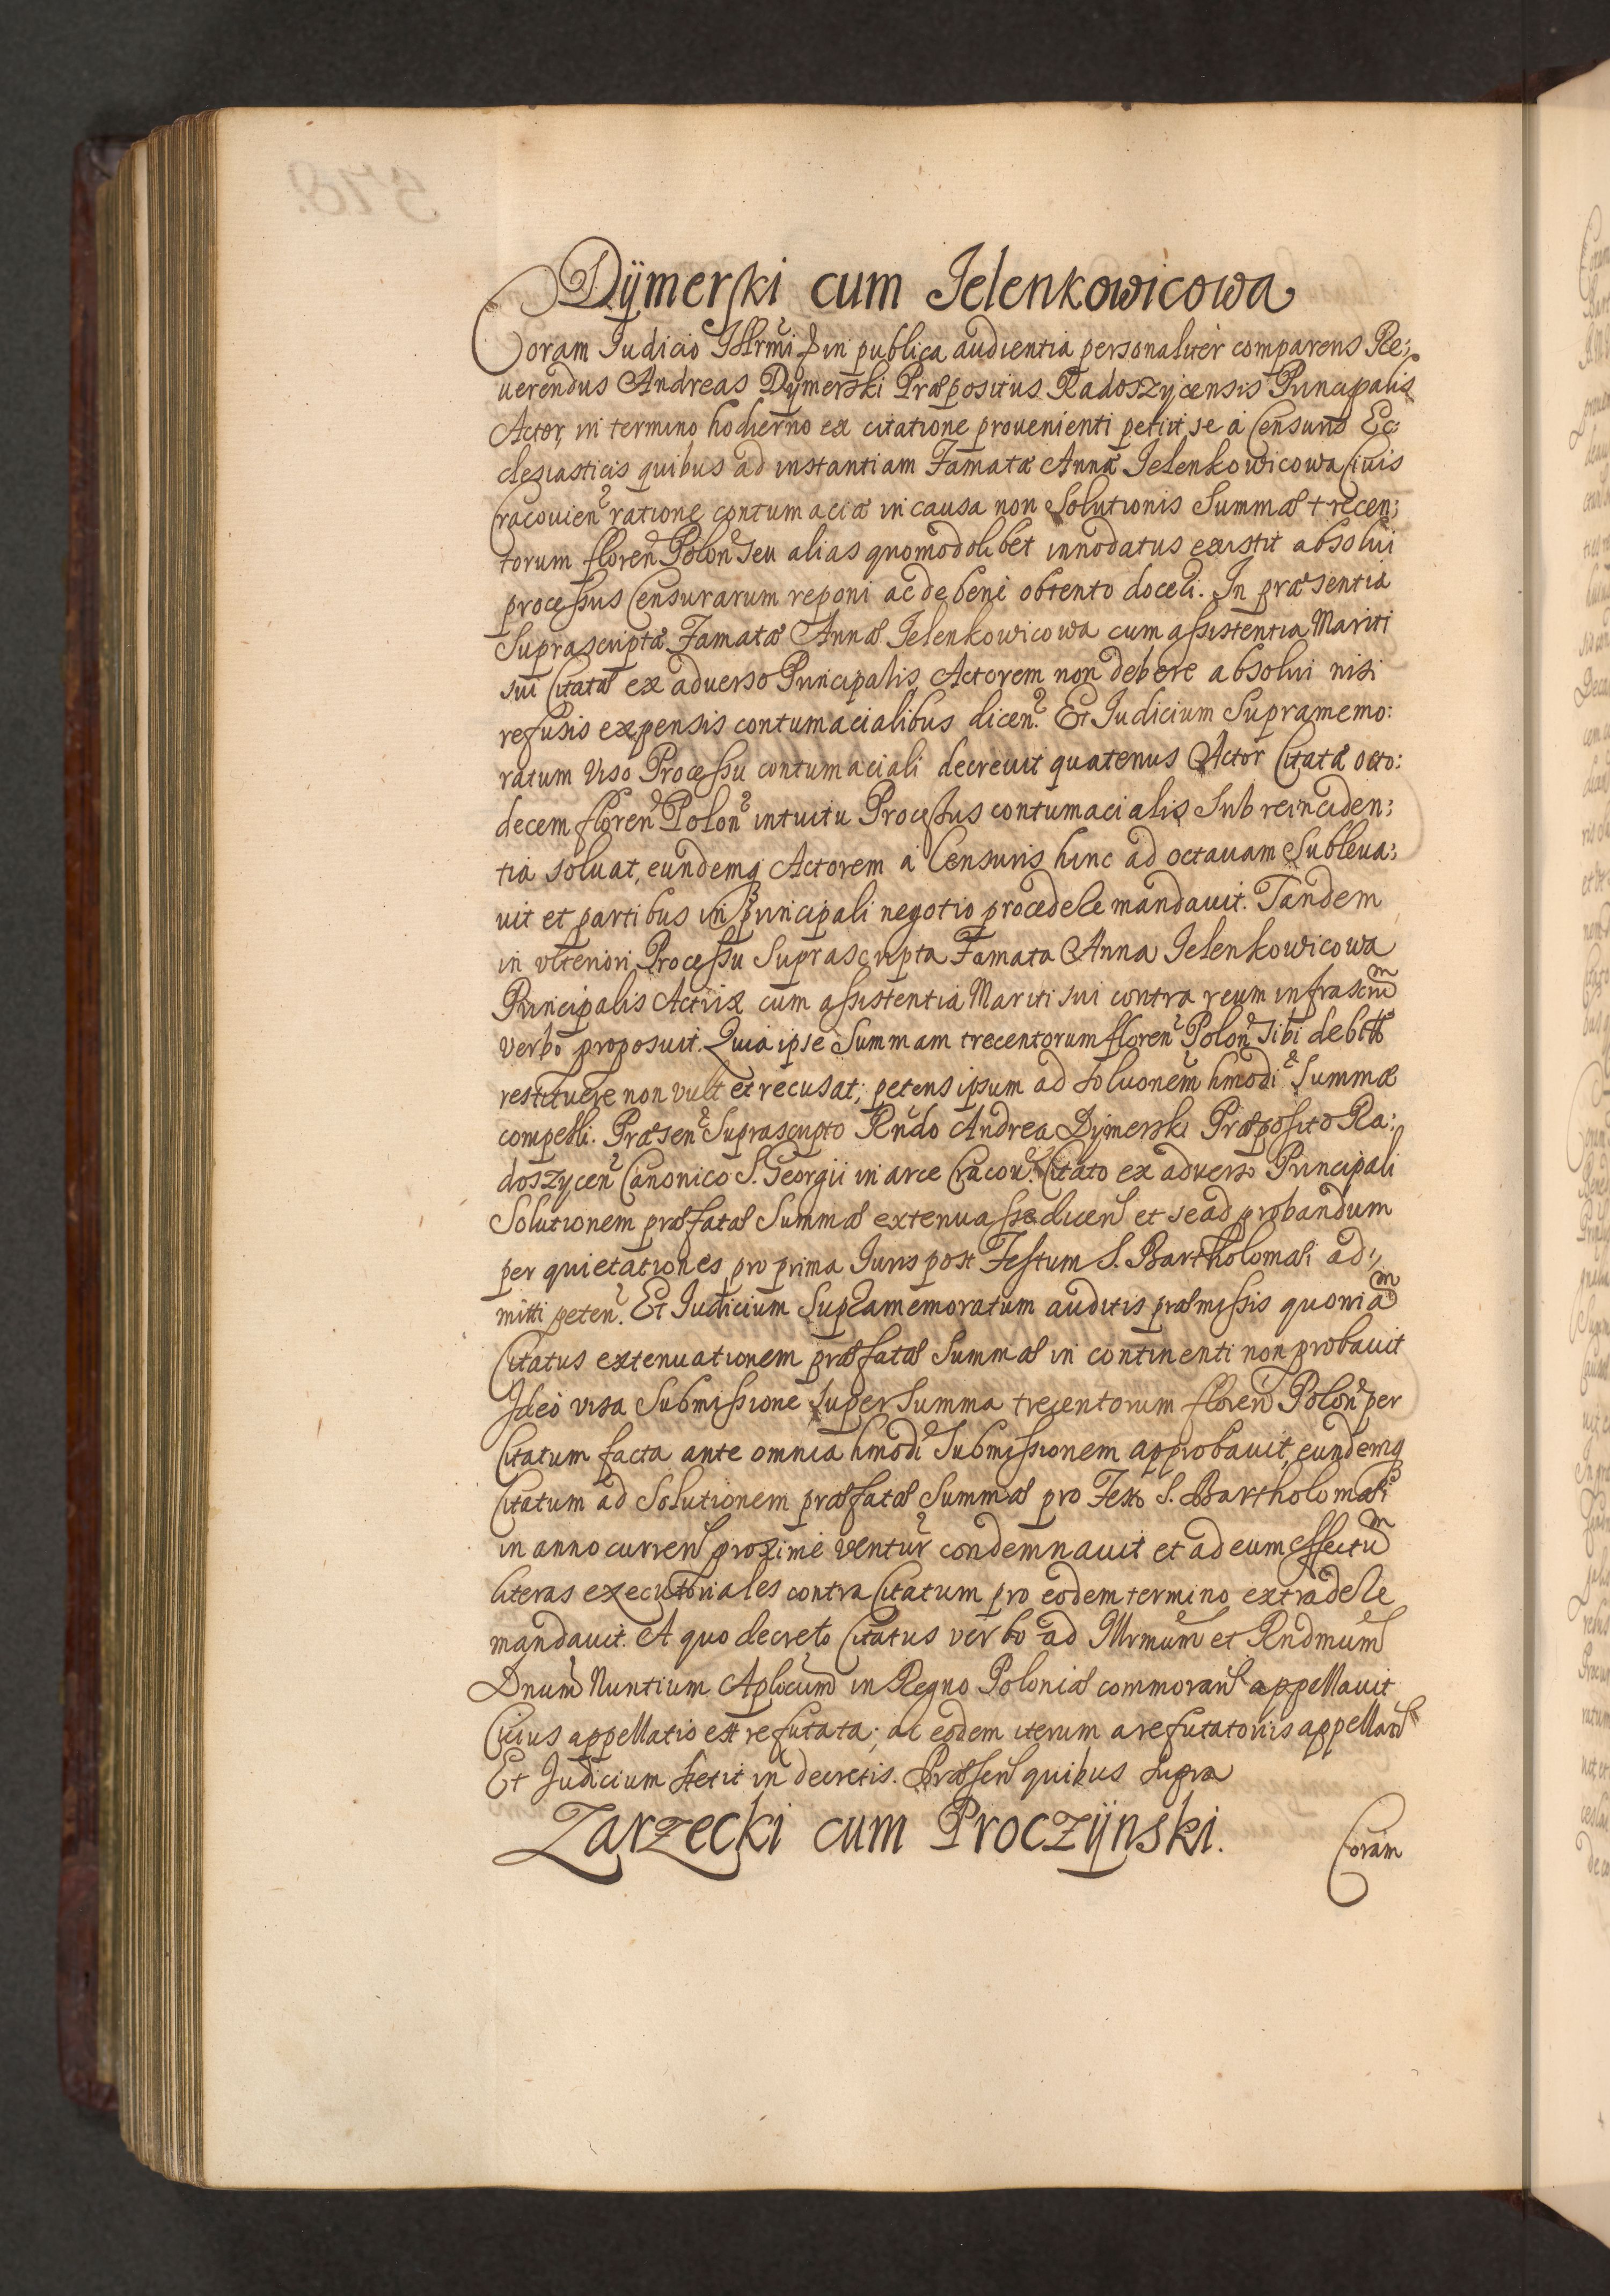 Dÿmerski cum Jelenkowicowa
Coram Judicio Illrmi & in publica audientia personaliter comparens Re:
uerendus Andreas Dÿmerski Præpositus Radoszÿcensis Principalis
Actor, in termino hodierno ex citatione prouenienti petiit se à Censuris Ec:
clesiasticis quibus ad instantiam Famatæ Annæ Jelenkowicowa Ciuis
Cracouien ratione contumaciæ in causa non Solutionis Summæ trecen:
torum floren Polon seu alias quomodolibet innodatus existit absolui
processus Censurarum reponi ac de bene obtento doceri. In præsentia
Suprascriptæ Famatæ Annæ Jelenkowicowa cum assistentia Mariti
sui Citatæ ex aduerso Principalis Actorem non debere absolui nisi
refusis expensis contumacialibus dicen. Et Judicium Supramemo:
ratum viso Processu contumaciali decreuit quatenus Actor Citatæ octo:
decem floren Polon intuitu Processus contumacialis Sub reinciden:
tia soluat, eundemq Actorem à Censuris hinc ad octauam Subleua:
uit et partibus in principali negotio procedere mandauit. Tandem
in vlteriori Processu Suprascripta Famata Anna Jelenkowicowa
Principalis Actrix cum assistentia Mariti sui contra reum infrascrm
verbo proposuit. Quia ipse Summam trecentorum floren Polon sibi debitā
restituere non vult et recusat; petens ipsum ad soluonem hmodi Summæ
compelli. Præsen Suprascripto Rndo Andrea Dÿmerski Præposito Ra:
doszÿcen Canonico S. Georgii in arce Cracou. Citato ex aduerso Principali
Solutionem præfatæ Summæ extenuasse dicen et se ad probandum
per quietationes pro prima Juris post Festum S. Bartholomæi ad:
mitti peten. Et Judicium Supramemoratum auditis præmissis quoniam
Citatus extenuationem præfatæ Summæ in continenti non probauit
Ideò visa Submissione super Summa trecentorum floren Polon per
Citatum facta ante omnia hmodi Submissionem approbauit, eundemq
Citatum ad Solutionem præfatæ Summæ pro Festo S. Bartholomæi
in anno curren proximè ventur condemnauit et ad eum effectum
literas executoriales contra Citatum pro eodem termino extradere
mandauit. A quo decreto Citatus verbo ad Illrmum et Rndmum
Dnum Nuntium Aplicum in Regno Poloniæ commoran appellauit
Cuius appellatio est refutata; ac eodem iterum a refutatoriis appellan
Et Judicium stetit in decretis. Præsen quibus supra
Zarzecki cum Proczÿnski.
Coram